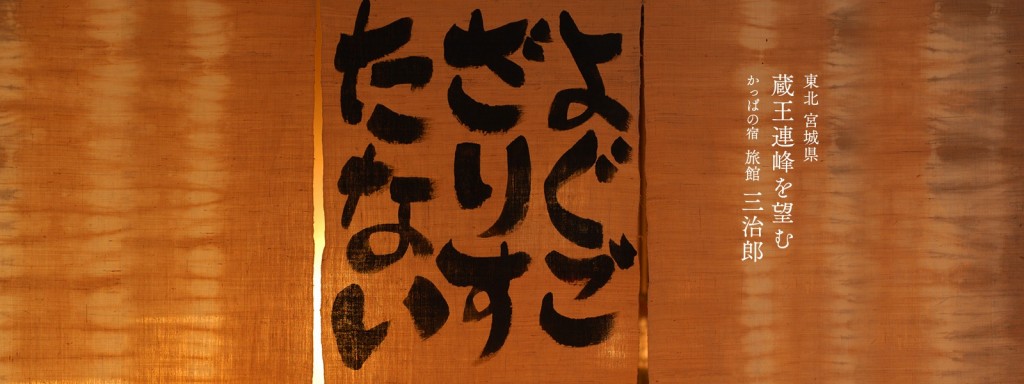 東北 宮城県
蔵王連峰を望む
かっぱの宿 旅館 三治郎
よぐご
ざりす
たない